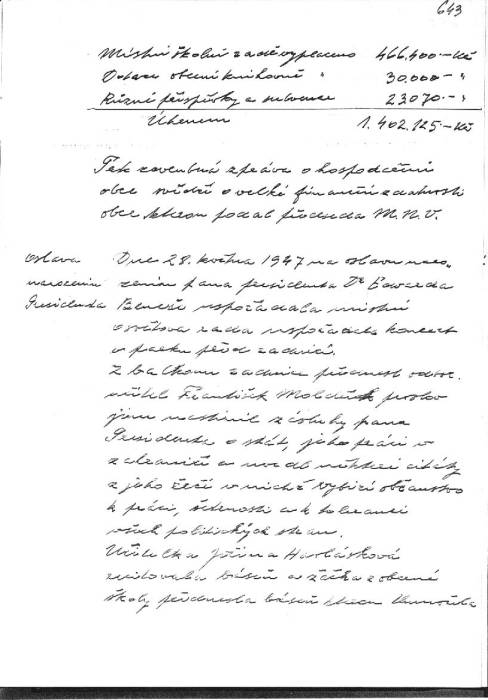 643
Místní školní radě vyplaceno 466.400.- Kčs
Dotace obecní knihovně " 30.000.- "
Různé příspěvky a subvence 23070.- "
Úhrnem 1.402.125.- Kčs
Tak zevrubná zpráva o hospodaření
obce svědčí o velké finanční zdatnosti
obce kterou podal předseda M.N.V.
Oslava narozenin Presidenta
Dne 28. května 1947 na oslavu naro-
zenin pana presidenta Dr Edvarda
Beneše uspořádala místní
osvětová rada uspořádala koncert
v parku před radnicí.
Z balkonu radnice přednesl odbor.
učitel František
jím nastínil zásluhy pana
Presidenta o stát, jeho práci v
zahraničí a uvedl některé citáty
z jeho řečí v nichž vybízí občanstvo
k práci, šetrnosti a k toleranci
všech politických stran.
Učitelka Jiřina Havlásková
recitovala báseň a žačka z obecné
školy přednesla báseň kterou